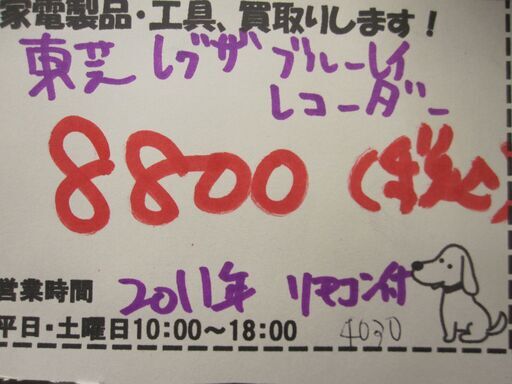 家電製品・工具、買取りします!
東芝 レグザ ブルーレイ
レコーダー
8800 (税込)
2011年 リモコン付
営業時間
平日・土曜日10:00〜18:00
4030